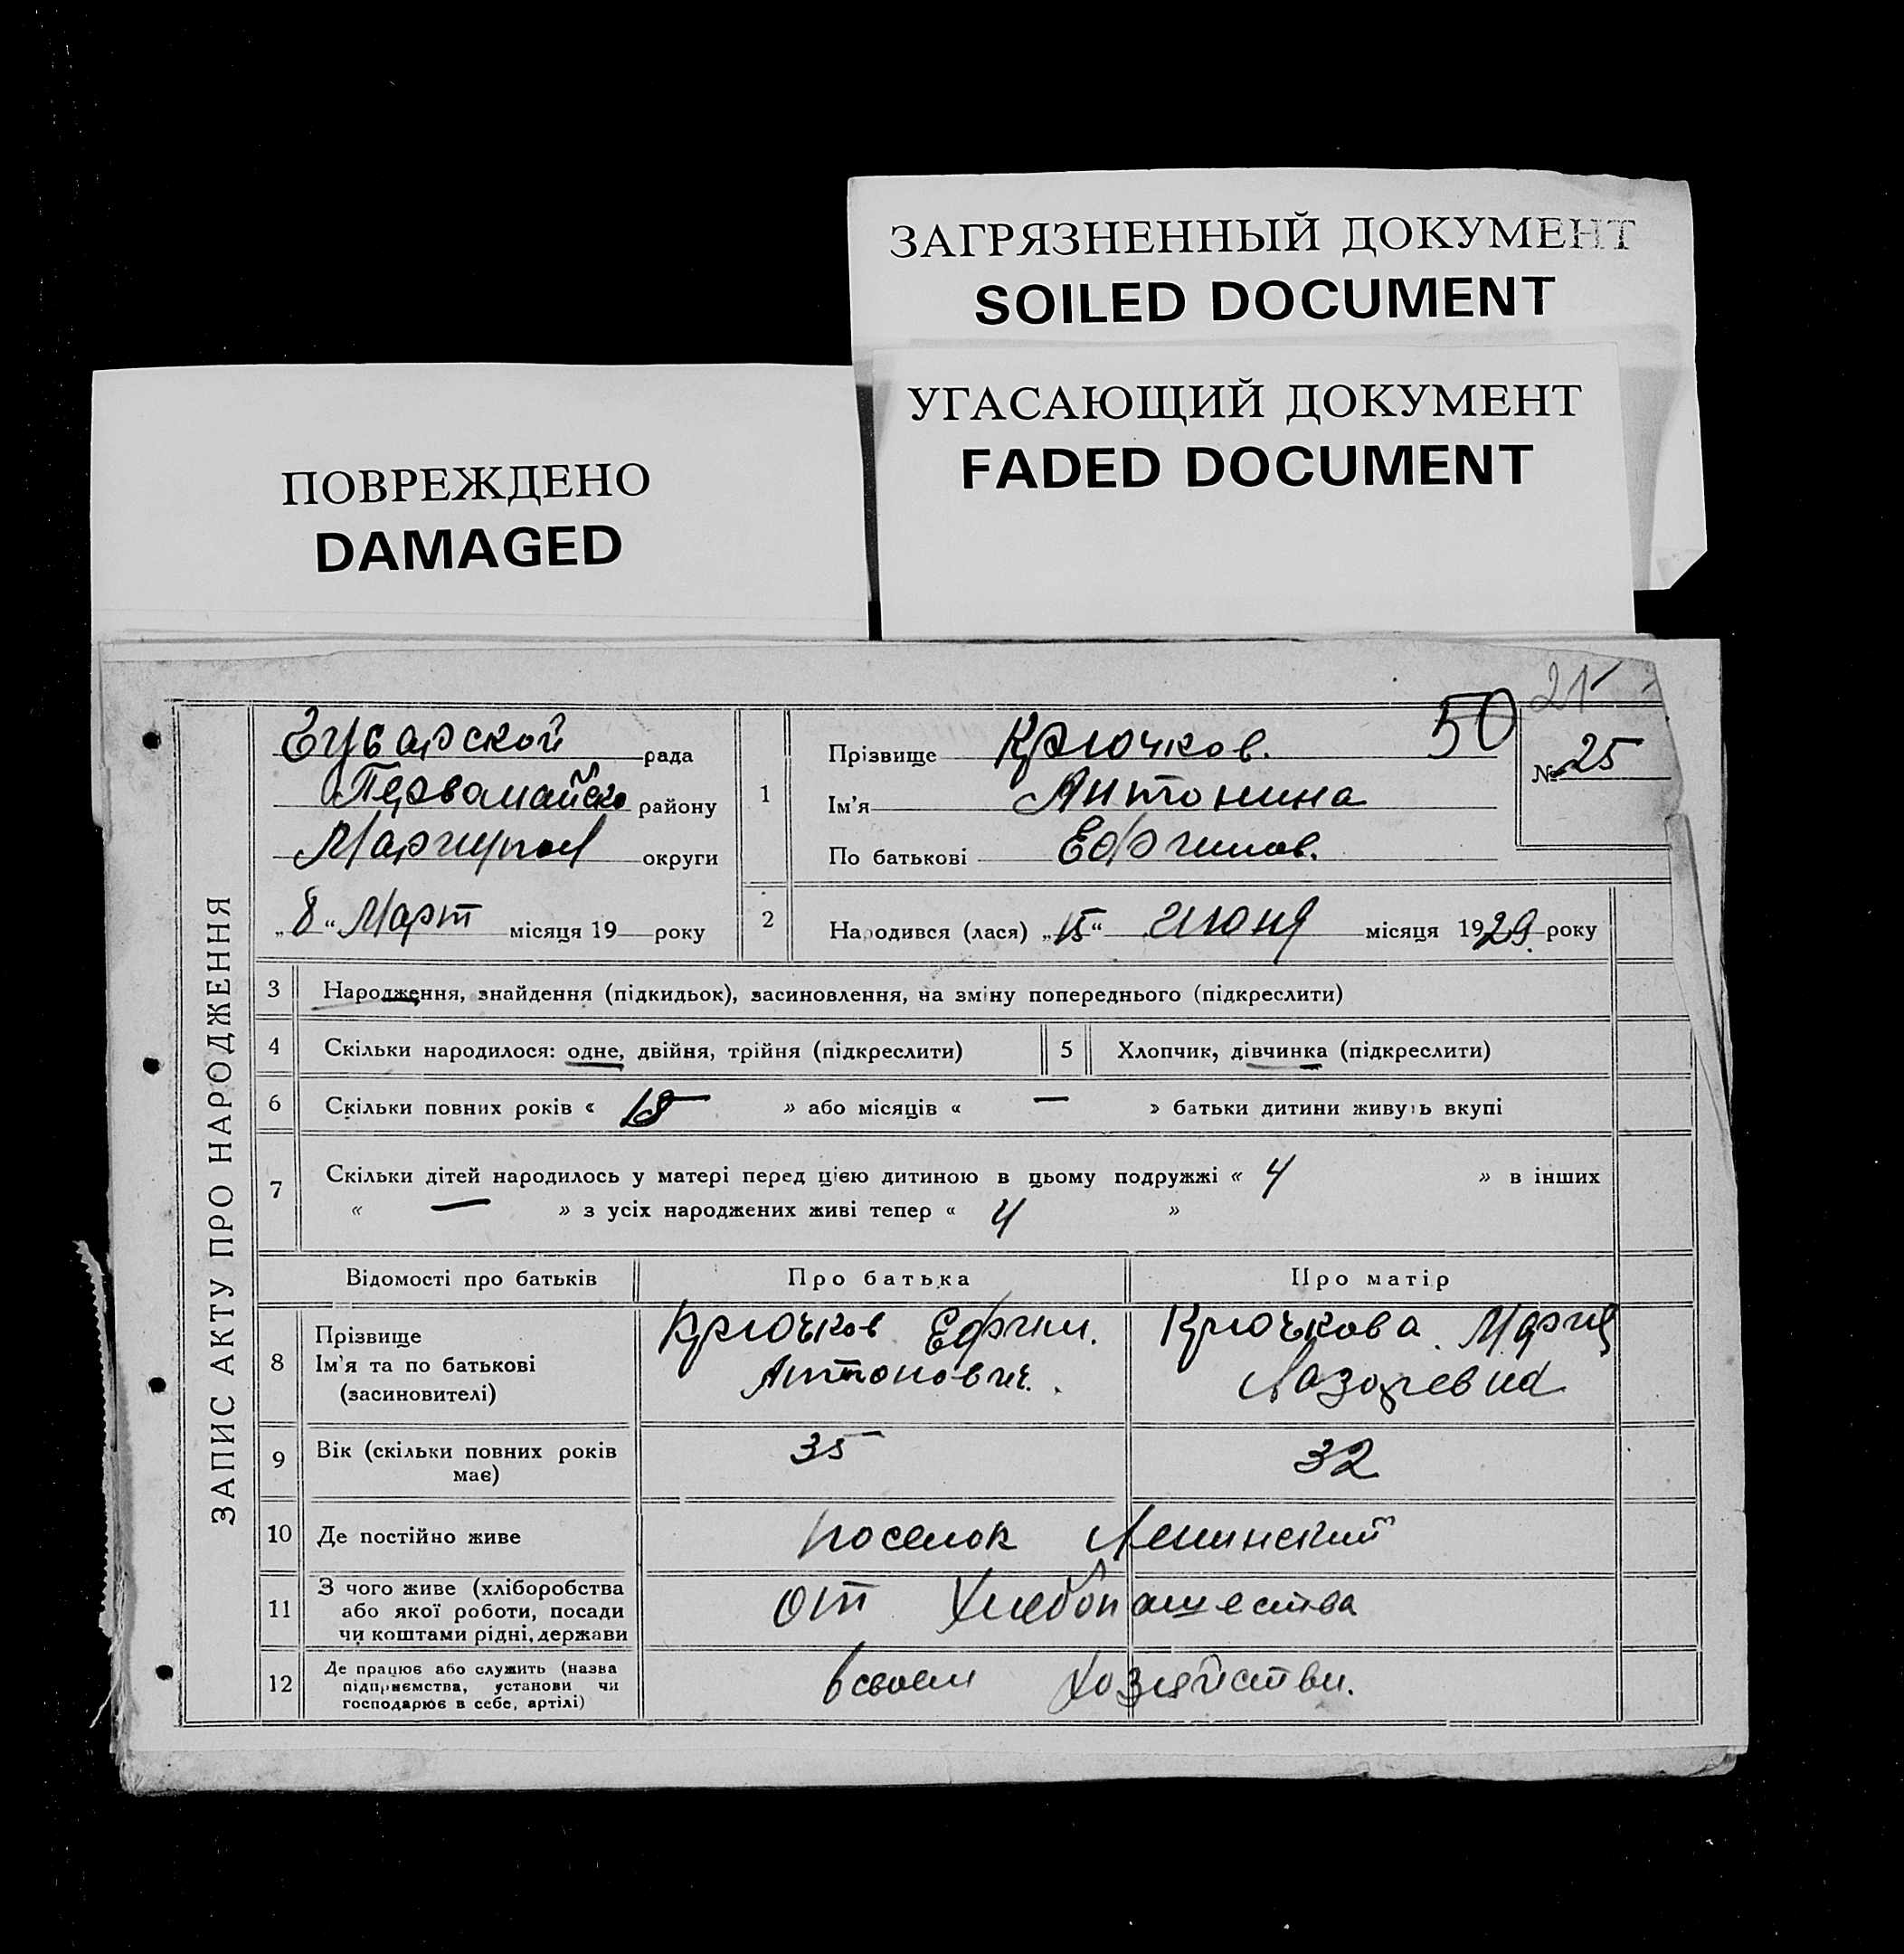 ЗАГРЯЗНЕННЫЙ ДОКУМЕНТ
SOILED DOCUMENT
УГАСАЮЩИЙ ДОКУМЕНТ
FADED DOCUMENT
ПОВРЕЖДЕНО
DAMAGED
21
50
№ 25
ЗАПИС АКТУ ПРО НАРОДЖЕННЯ
рада
Первомайско району
Мариупол округи
„8“ Март місяця 19 року
1
Прізвище Крючков.
Ім'я Антонина
По батькові Ефимов.
2 Народився (лася) „15“ Июня місяця 1929 року
3 Народження, знайдення (підкидьок), засиновлення, на зміну попереднього (підкреслити)
4 Скільки народилося: одне, двійня, трійня (підкреслити) 5 Хлопчик, дівчинка (підкреслити)
6 Скільки повних років « » або місяців « — » батьки дитини живуть вкупі
7 Скільки дітей народилось у матері перед цією дитиною в цьому подружжі « 4 » в інших
« — » з усіх народжених живі тепер « 4 »
Відомості про батьків Про батька Про матір
8 Прізвище
Ім'я та по батькові
(засиновителі)
Крючков Ефим.
Антонович.
Крючкова Мария
Лазаревна
9 Вік (скільки повних років
має)
35 32
10 Де постійно живе поселок Ленинский
11 З чого живе (хліборобства
або якої роботи, посади
чи коштами рідні, держави
от Хлебопашества
12 Де працює або служить (назва
підприємства, установи чи
господарює в себе, артілі)
в своем хозяйстви.